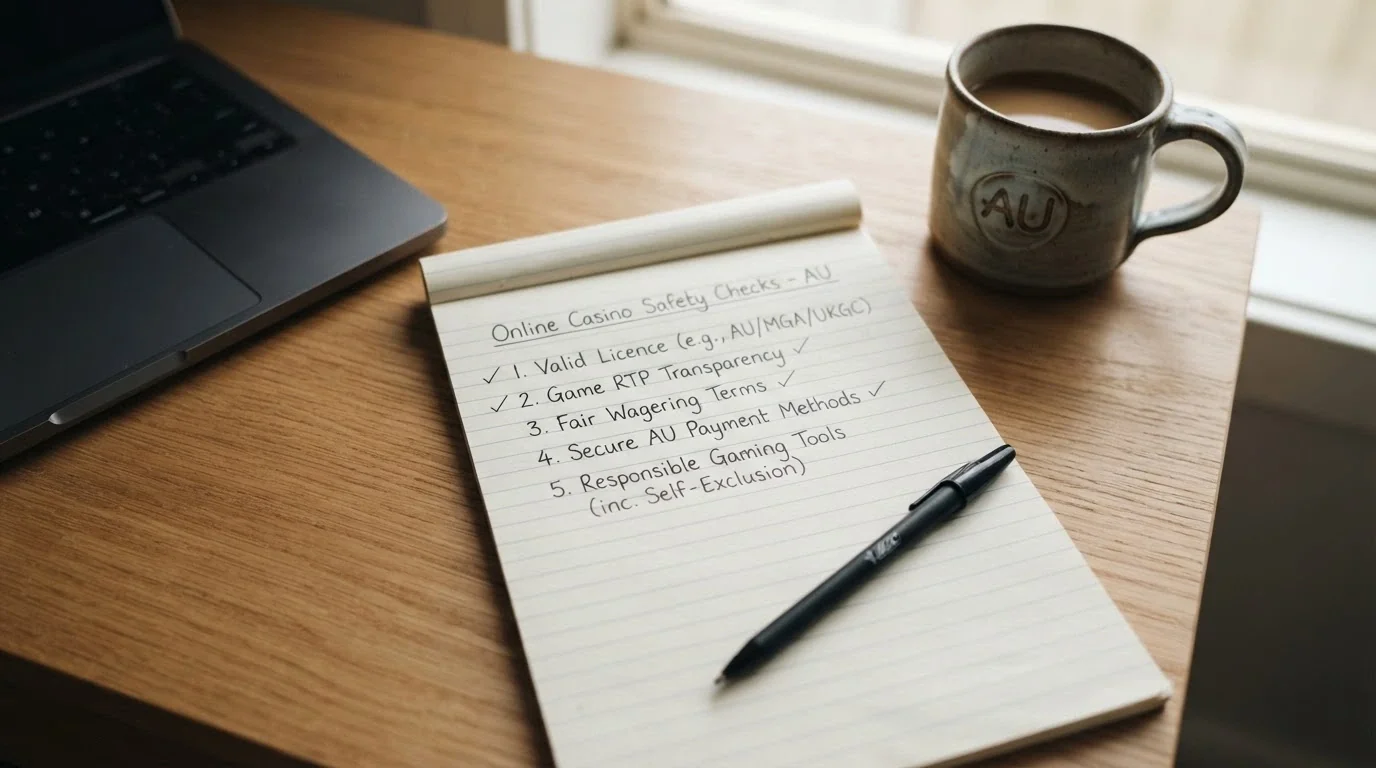 Online Casino Safety Checks - AU
✓ 1. Valid Licence (e.g., AU/MGA/UKGC)
✓ 2. Game RTP Transparency ✓
3. Fair Wagering Terms ✓
4. Secure AU Payment Methods ✓
5. Responsible Gaming Tools
(inc. Self-Exclusion)
AU